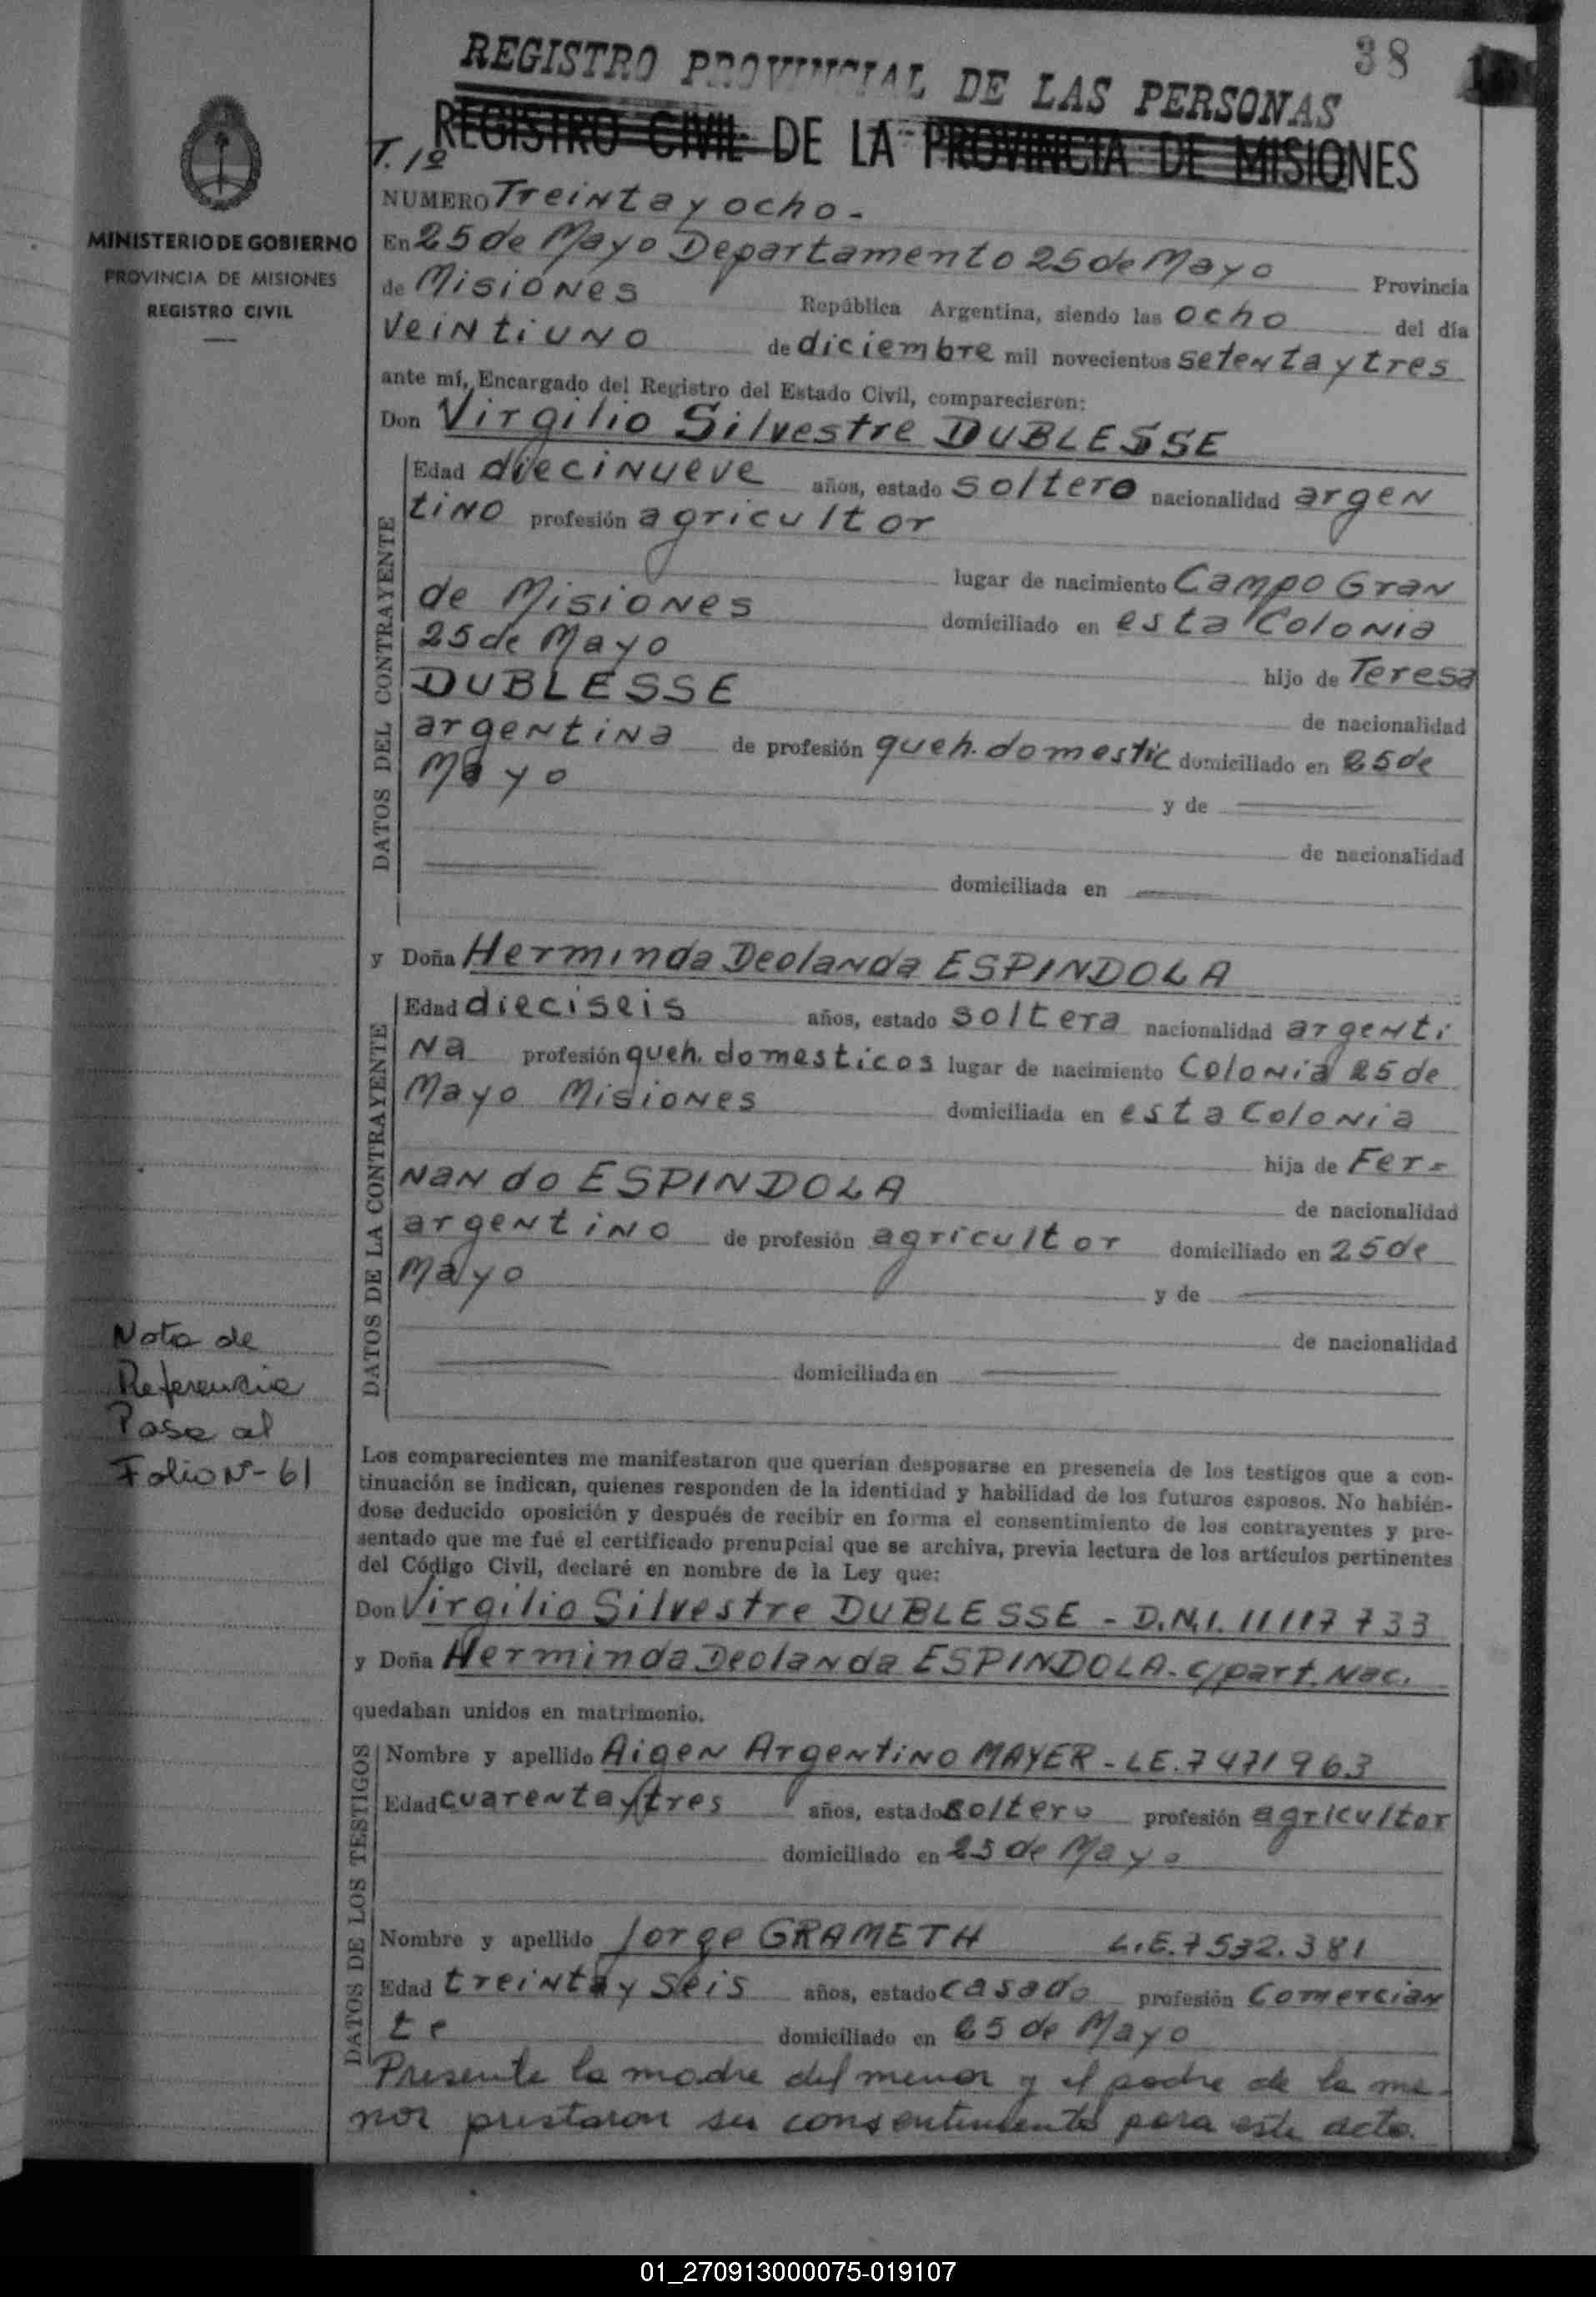 38
REGISTRO PROVINCIAL DE LAS PERSONAS
REGISTRO CIVIL DE LA PROVINCIA DE MISIONES
T. 1º
MINISTERIO DE GOBIERNO
PROVINCIA DE MISIONES
REGISTRO CIVIL
NUMERO Treinta y ocho.-
En 25 de Mayo Departamento 25 de Mayo Provincia
de Misiones República Argentina, siendo las ocho del día
veintiuno de diciembre mil novecientos setenta y tres
ante mí, Encargado del Registro del Estado Civil, comparecieron:
Don Virgilio Silvestre DUBLESSE
DATOS DEL CONTRAYENTE
Edad diecinueve años, estado soltero nacionalidad argen
tino profesión agricultor
lugar de nacimiento Campo Gran
de Misiones domiciliado en esta Colonia
25 de Mayo
hijo de Teresa
DUBLESSE
de nacionalidad
argentina de profesión queh. domestic domiciliado en 25 de
Mayo
y de
de nacionalidad
domiciliada en
y Doña Herminda Deolanda ESPINDOLA
DATOS DE LA CONTRAYENTE
Edad dieciseis años, estado soltera nacionalidad argenti
na profesión queh. domesticos lugar de nacimiento Colonia 25 de
Mayo Misiones domiciliada en esta Colonia
hija de Fer=
nando ESPINDOLA
de nacionalidad
argentino de profesión agricultor domiciliado en 25 de
Mayo
y de
de nacionalidad
domiciliada en
Nota de
Referencia
Pasa al
Folio Nº- 61
Los comparecientes me manifestaron que querían desposarse en presencia de los testigos que a con-
tinuación se indican, quienes responden de la identidad y habilidad de los futuros esposos. No habién-
dose deducido oposición y después de recibir en forma el consentimiento de los contrayentes y pre-
sentado que me fué el certificado prenupcial que se archiva, previa lectura de los artículos pertinentes
del Código Civil, declaré en nombre de la Ley que:
Don Virgilio Silvestre DUBLESSE - D.N.I. 11117733
y Doña Herminda Deolanda ESPINDOLA- c/part. Nac.
quedaban unidos en matrimonio.
DATOS DE LOS TESTIGOS
Nombre y apellido Aigen Argentino MAYER - LE. 7471963
Edad cuarenta y tres años, estado soltero profesión agricultor
domiciliado en 25 de Mayo
Nombre y apellido Jorge GRAMETH L.E. 7532.381
Edad treinta y seis años, estado casado profesión Comercian
te domiciliado en 25 de Mayo
Presente la madre del menor y el padre de la me-
nor prestaron su consentimiento para este acto.
01_270913000075-019107